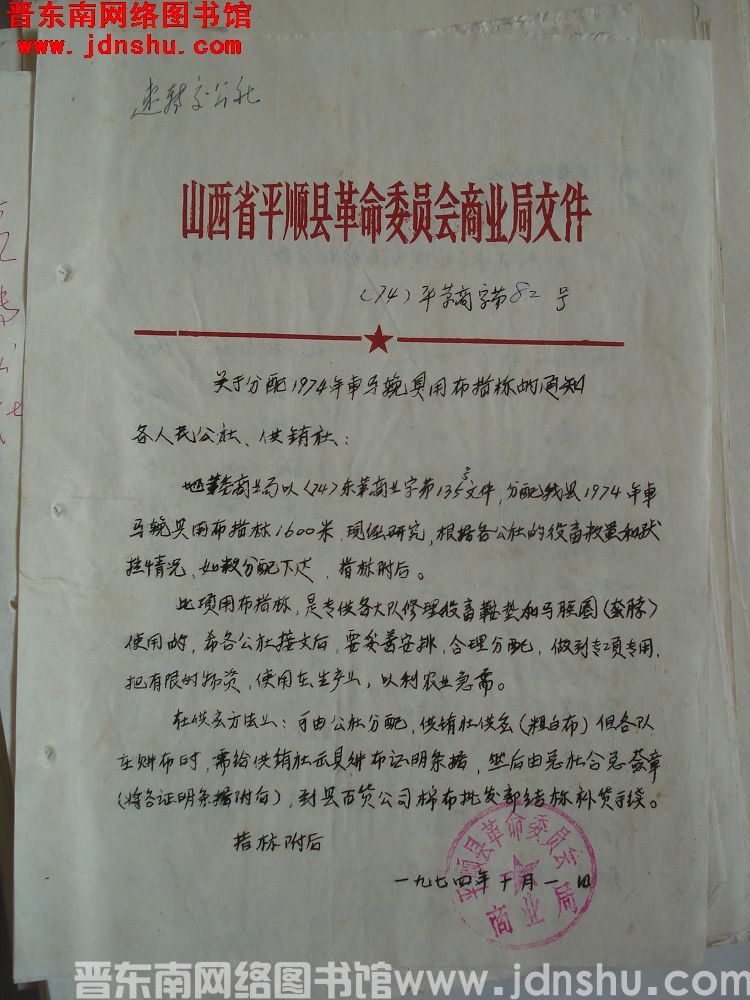 晋东南网络图书馆
www.jdnshu.com
速转交公社
山西省平顺县革命委员会商业局文件
(74)平革商字第82号
关于分配1974年车马挽具用布指标的通知
各人民公社、供销社:
地革委商业局以(74)东革商业字第135号文件,分配我县1974年车
马挽具用布指标1600米,现经研究,根据各公社的役畜数量和状
挂情况,如数分配下达,指标附后。
此项用布指标,是专供各大队修理役畜鞍垫和马脖圈(套脖)
使用的,希各公社接文后,要妥善安排,合理分配,做到专项专用,
把有限的物资,使用在生产上,以利农业急需。
在供应方法上:可由公社分配,供销社供应(粗白布)但各队
在购布时,需给供销社示具购布证明条据,然后由总社合总盖章
(将各证明条据附后),到县百货公司棉布批发部结标补货手续。
指标附后
一九七四年十月一日
平顺县革命委员会
商业局
晋东南网络图书馆www.jdnshu.com